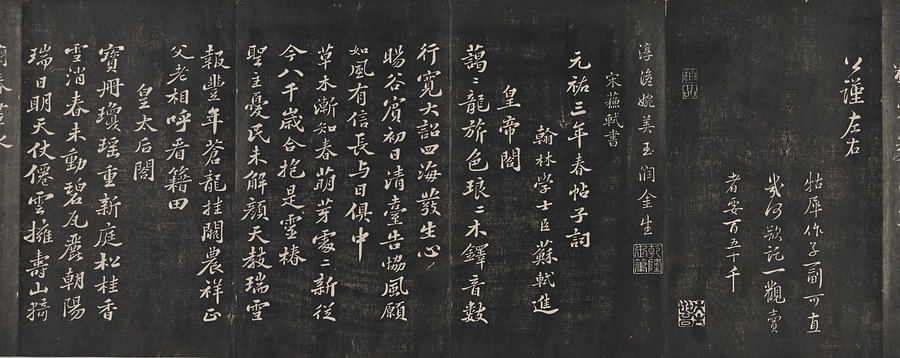 公謹左右
牯犀作子一副可直
幾何欲託一觀賣
者要百五十千
淳澹婉美玉潤金生
宋蘇軾書
元祐三年春帖子詞
翰林學士臣蘇軾進
皇帝閣
藹〻龍旂色琅〻木鐸音數
行寬大詔四海發生心
暘谷賓初日清臺告協風願
如風有信長与日俱中
草木漸知春萌芽處〻新從
今八千歲合抱是靈椿
聖主憂民未解顏天教瑞雪
報豐年蒼龍挂闕農祥正
父老相呼看籍田
皇太后閣
寶冊瓊瑤重新庭松桂香
雪消春未動碧瓦麗朝陽
瑞日明天仗僊雲擁壽山猗